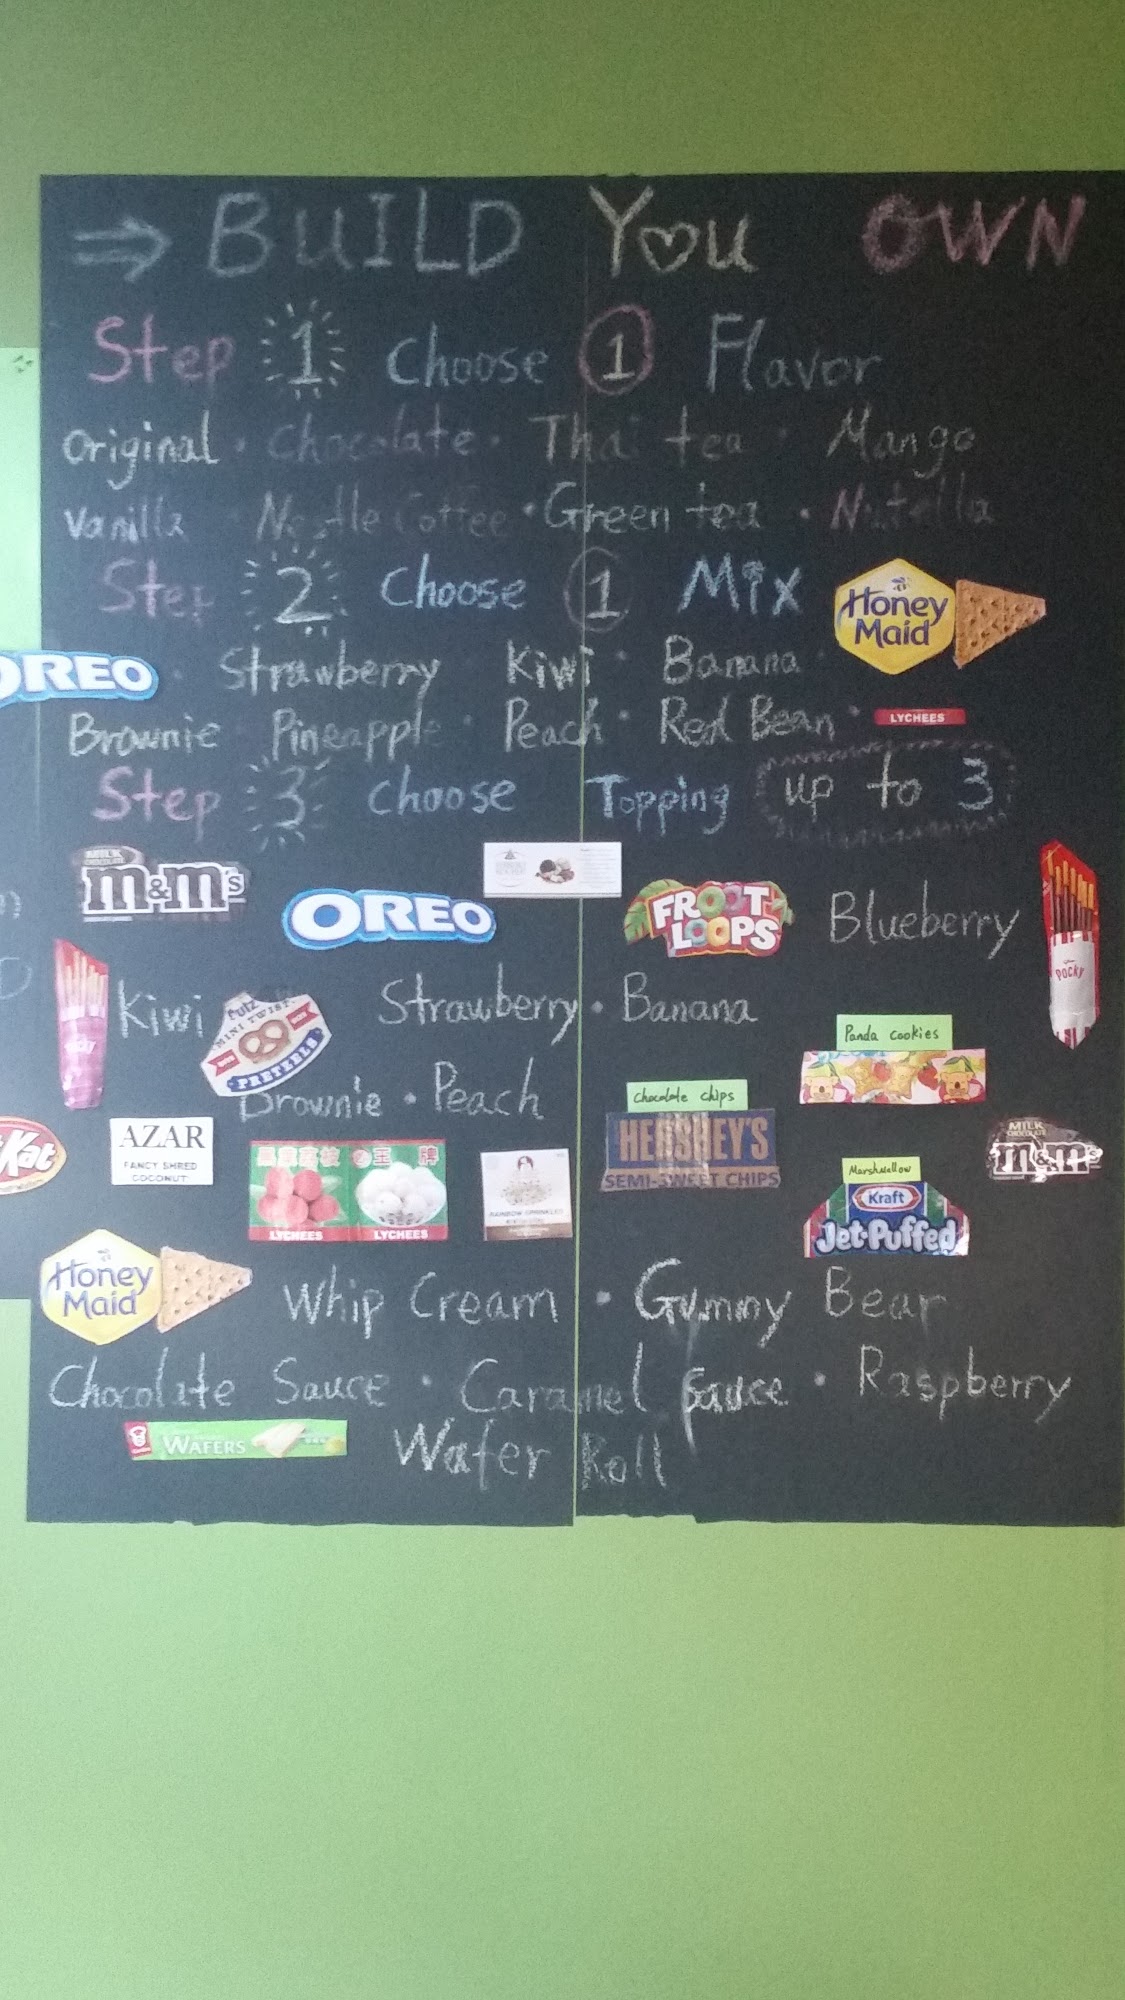 ⇒ BUILD YOU OWN
Step 1 Choose 1 Flavor
Original · Chocolate · Thai tea · Mango
Vanilla · Nestle Coffee · Green tea · Nutella
Step 2 Choose 1 Mix
Honey Maid
OREO · Strawberry · Kiwi · Banana ·
Brownie · Pineapple · Peach · Red Bean · LYCHEES
Step 3 Choose Topping up to 3
MILK CHOCOLATE m&m's
OREO
FROOT LOOPS
Blueberry
POCKY
Pocky
Kiwi
Utz MINI TWIST PRETZELS
Strawberry · Banana
Panda cookies
Brownie · Peach
Chocolate chips
HERSHEY'S
SEMI-SWEET CHIPS
Kat
AZAR
FANCY SHRED
COCONUT
王 牌
LYCHEES LYCHEES
RAINBOW SPRINKLES
MILK m&m's
Marshmallow
Kraft
Jet-Puffed
Honey Maid
Whip Cream · Gummy Bear
Chocolate Sauce · Caramel Sauce · Raspberry
WAFERS
Wafer Roll